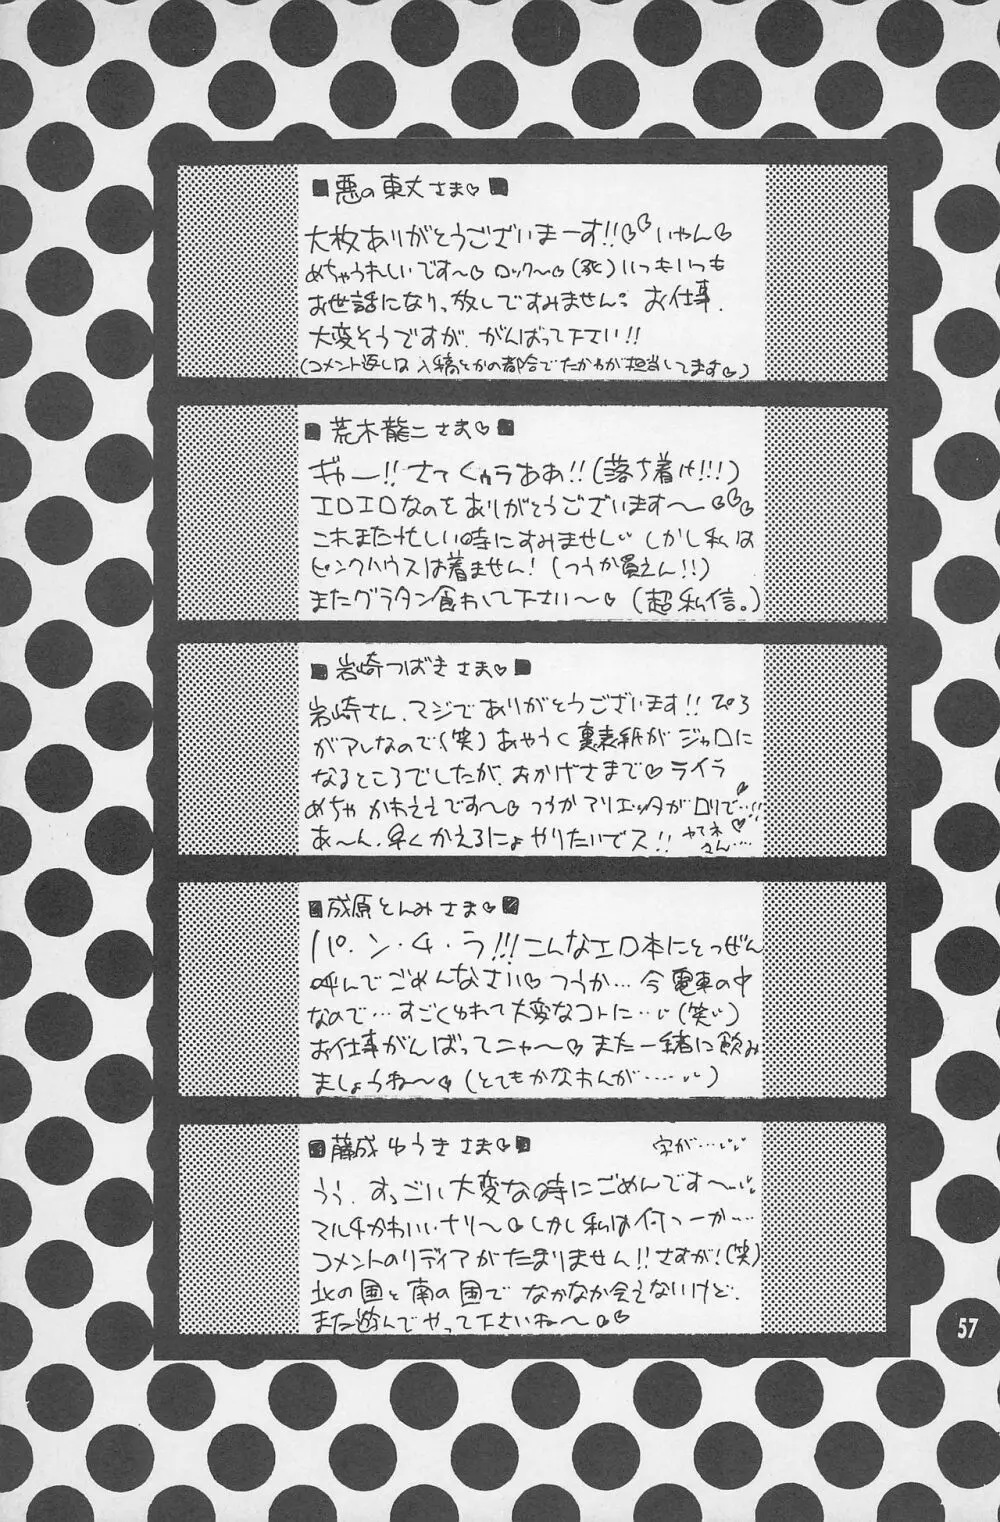 ■悪の東丈さま♡■
大枚ありがとうございまーす!!♡♡いやん♡
めちゃうれしいです〜♡ロック〜♡(死)いつもいつも
お世話になりっ放しですみません。お仕事、
大変そうですが、がんばって下さい!!
(コメント返しは入稿とかの都合でたかやが担当してます♡)
■荒木龍二さま♡■
ギャー!!さてくゥラああ!!(落ち着け!!!)
エロエロなのをありがとうございます〜♡♡♡
これまた忙しい時にすみません しかし私は
ピンクハウスは着ません!(つうか買えん!!)
またグラタン食わして下さい〜♡(超私信。)
■岩崎つばきさま♡■
岩崎さん、マジでありがとうございます!!
がアレなので(笑)あやうく裏表紙がジャロに
なるところでしたが、おかげさまで♡ライラ
めちゃかわええです〜♡つうかアリエッタがロリで…!!
あ〜ん、早くかえるにょやりたいでス!!
さん…
■成原とんみさま♡■
パ・ン・チ・ラ!!!こんなエロ本にとつぜん
呼んでごめんなさい♡つうか…今電車の中
なので…すごくゆれて大変なコトに…(笑)
お仕事がんばってニャ〜♡また一緒に飲み
ましょうね〜♡(とてもかなわんが……)
■藤成ゆうきさま♡■ 字が…
うぅ、すっごい大変な時にごめんです〜
マルチかわいいナリ〜♡しかし私は何つーか…
コメントのリディアがたまりません!!さすが!(笑)
北の国と南の国でなかなか会えないけど、
また遊んでやって下さいね〜♡♡
57